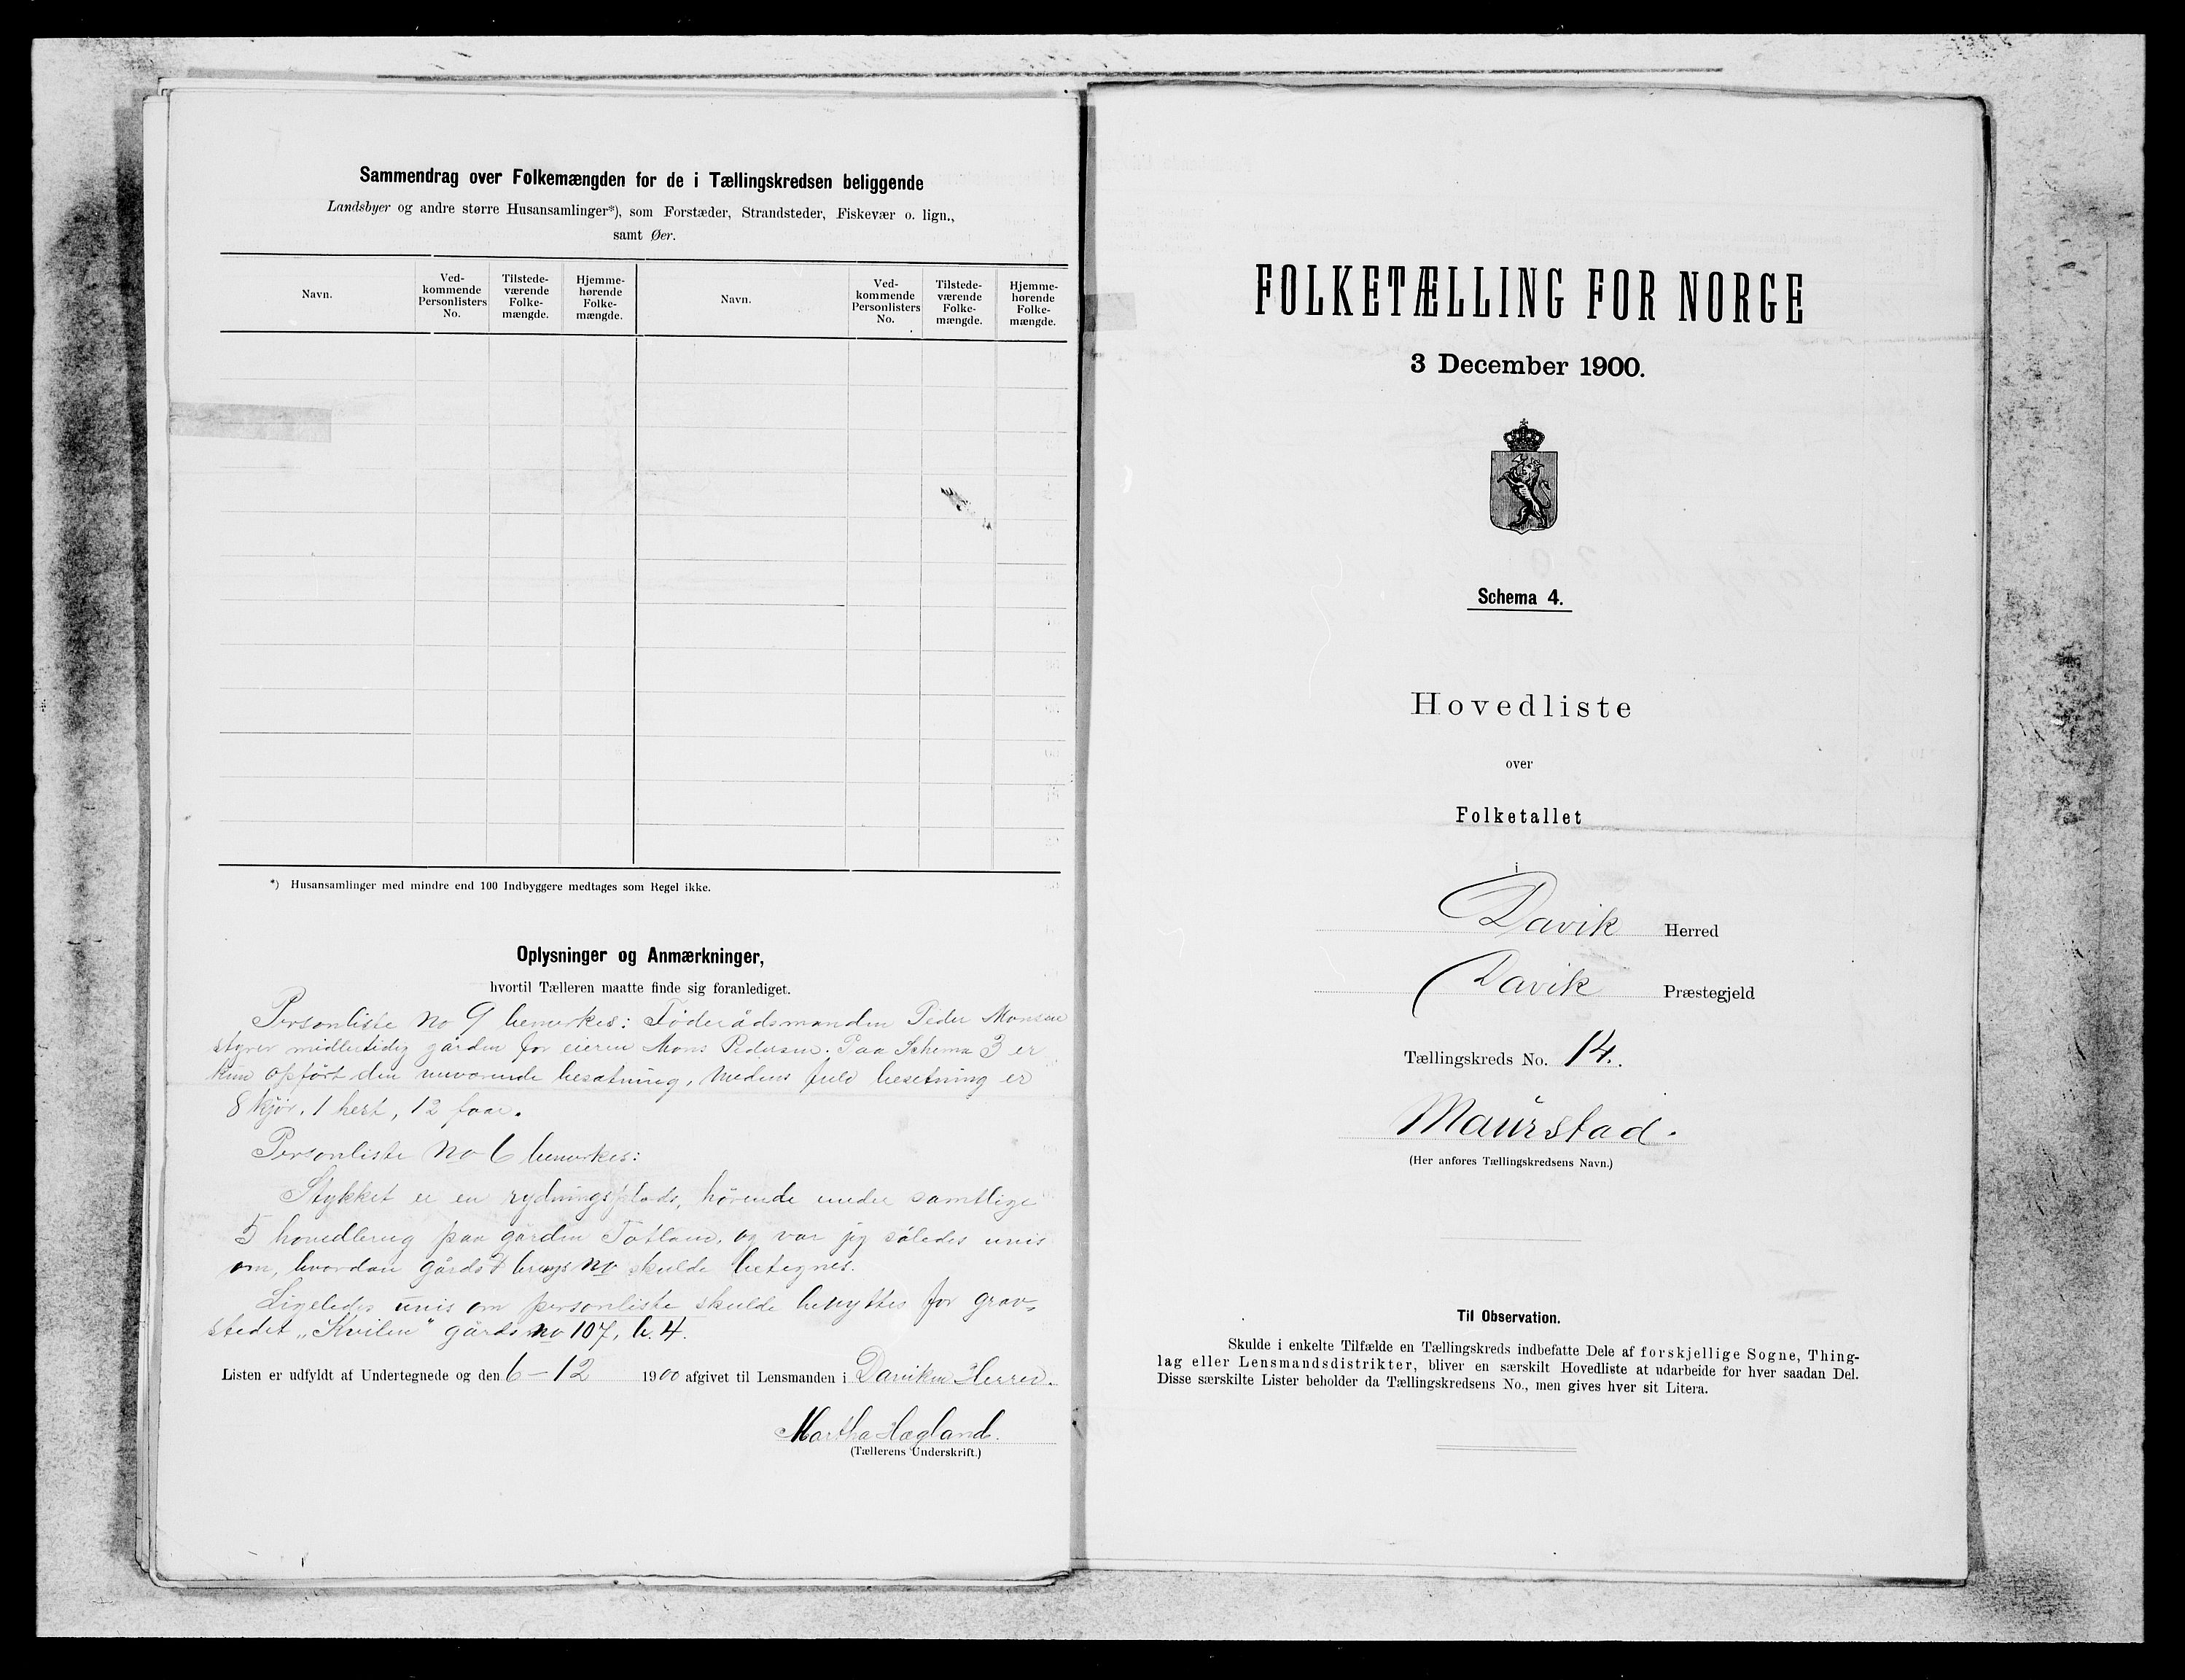 Sammendrag over Folkemængden for de i Tællingskredsen beliggende
Landsbyer og andre større Husansamlinger*), som Forstæder, Strandsteder, Fiskevær o. lign.,
samt Øer.
Navn.
Ved-
kommende
Personlisters
No.
Tilstede-
værende
Folke-
mængde.
Hjemme-
hørende
Folke-
mængde.
Navn.
Ved-
kommende
Personlisters
No.
Tilstede-
værende
Folke-
mængde.
Hjemme-
hørende
Folke-
mængde.
*) Husansamlinger med mindre end 100 Indbyggere medtages som Regel ikke.
Oplysninger og Anmærkninger,
hvortil Tælleren maatte finde sig foranlediget.
Personliste No 9 bemerkes: Føderådsmanden Peder Monsen
styrer midlertidig gården for eieren Mons Pedersen. Paa Schema 3 er
kun opført den nuværende besætning, medens fuld besetning er
8 kjør, 1 hest, 12 faar.
Personliste No 6 bemerkes:
Stykket er en rydningsplads, hørende under samtlige
5 hovedbrug paa gården Totland, og var jeg således uvis
om, hvordan gårds & brugs No skulde betegnes.
Ligeledes uvis om personliste skulde benyttes for grav-
stedet „Kvilen" gårds No 107, b. 4.
Listen er udfyldt af Undertegnede og den 6 – 12 1900 afgivet til Lensmanden i Daviken Herred.
Martha Hagland.
(Tællerens Underskrift.)
FOLKETÆLLING FOR NORGE
3 December 1900.
Schema 4.
Hovedliste
over
Folketallet
i
Davik Herred
Davik Præstegjeld
Tællingskreds No. 14.
Maurstad.
(Her anføres Tællingskredsens Navn.)
Til Observation.
Skulde i enkelte Tilfælde en Tællingskreds indbefatte Dele af forskjellige Sogne, Thing-
lag eller Lensmandsdistrikter, bliver en særskilt Hovedliste at udarbeide for hver saadan Del.
Disse særskilte Lister beholder da Tællingskredsens No., men gives hver sit Litera.